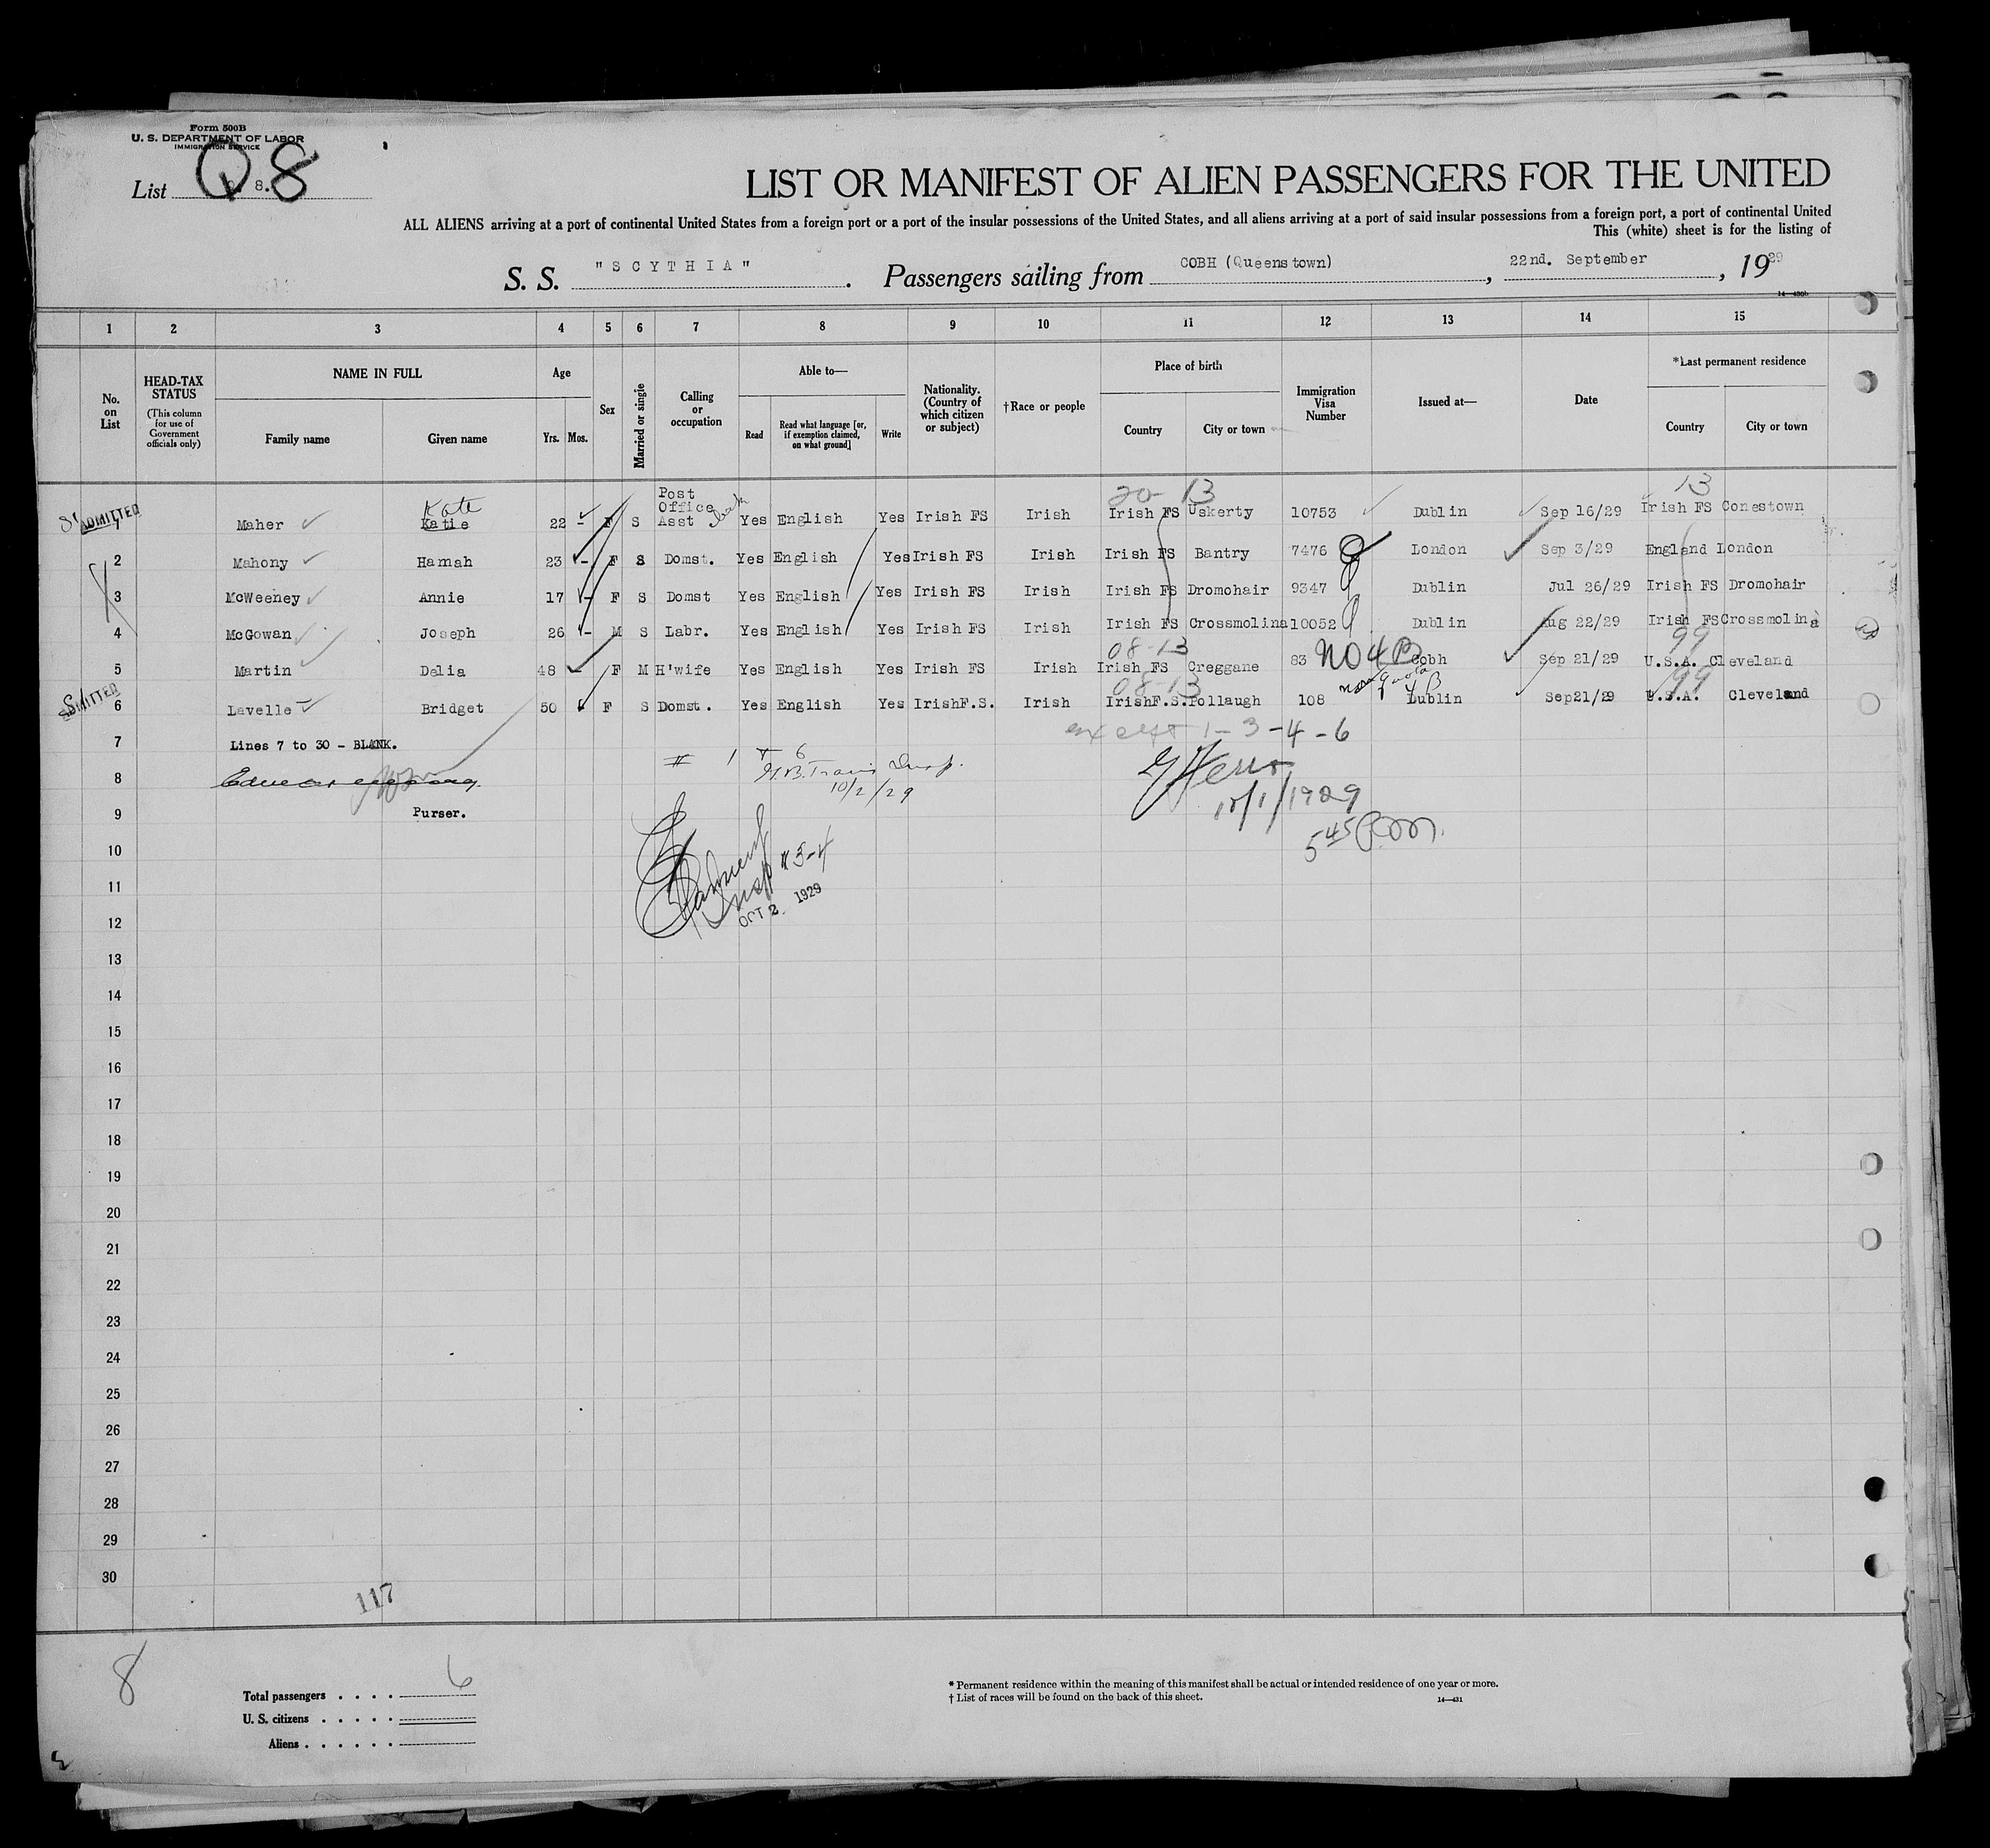 Form 500B
U. S. DEPARTMENT OF LABOR
IMMIGRATION SERVICE
List Q 8.
Q8
LIST OR MANIFEST OF ALIEN PASSENGERS FOR THE UNITED
ALL ALIENS arriving at a port of continental United States from a foreign port or a port of the insular possessions of the United States, and all aliens arriving at a port of said insular possessions from a foreign port, a port of continental United
This (white) sheet is for the listing of
S. S. "SCYTHIA". Passengers sailing from COBH (Queenstown), 22nd. September, 1929
14—430b
1 2 3 4 5 6 7 8 9 10 11 12 13 14 15
No. on List
HEAD-TAX STATUS (This column for use of Government officials only)
NAME IN FULL Family name Given name
Age Yrs. Mos.
Sex
Married or single
Calling or occupation
Able to— Read Read what language [or, if exemption claimed, on what ground] Write
Nationality. (Country of which citizen or subject)
†Race or people
Place of birth Country City or town
Immigration Visa Number
Issued at—
Date
*Last permanent residence Country City or town
Kate 20-13 13
ADMITTED 1 Maher Katie 22 - F S Post Office Asst Yes English Yes Irish FS Irish Irish FS Uskerty 10753 Dublin Sep 16/29 Irish FS Conestown
2 Mahony Hamah 23 - F S Domst. Yes English Yes Irish FS Irish Irish FS Bantry 7476 London Sep 3/29 England London
3 McWeeney Annie 17 - F S Domst Yes English Yes Irish FS Irish Irish FS Dromohair 9347 Dublin Jul 26/29 Irish FS Dromohair
4 McGowan Joseph 26 - M S Labr. Yes English Yes Irish FS Irish Irish FS Crossmolina 10052 Dublin Aug 22/29 Irish FS Crossmolina
08-13 99
5 Martin Delia 48 - F M H'wife Yes English Yes Irish FS Irish Irish FS Creggane 83 NO 4 B Cobh Sep 21/29 U.S.A. Cleveland
08-13 non quota 4 B 99
ADMITTED 6 Lavelle Bridget 50 - F S Domst. Yes English Yes IrishF.S. Irish IrishF.S. Pollaugh 108 Dublin Sep21/29 U.S.A. Cleveland
except 1-3-4-6
7 Lines 7 to 30 - BLANK.
# 1 + 6
8
Insp.
10/2/29
10/1/1929
9 Purser.
5 45 P.M.
10
Insp # 3-4
11
OCT 2 1929
12
13
14
15
16
17
18
19
20
21
22
23
24
25
26
27
28
29
30
117
8
Total passengers . . . . 6
U. S. citizens . . . . .
Aliens . . . . . .
* Permanent residence within the meaning of this manifest shall be actual or intended residence of one year or more.
† List of races will be found on the back of this sheet.
14—431